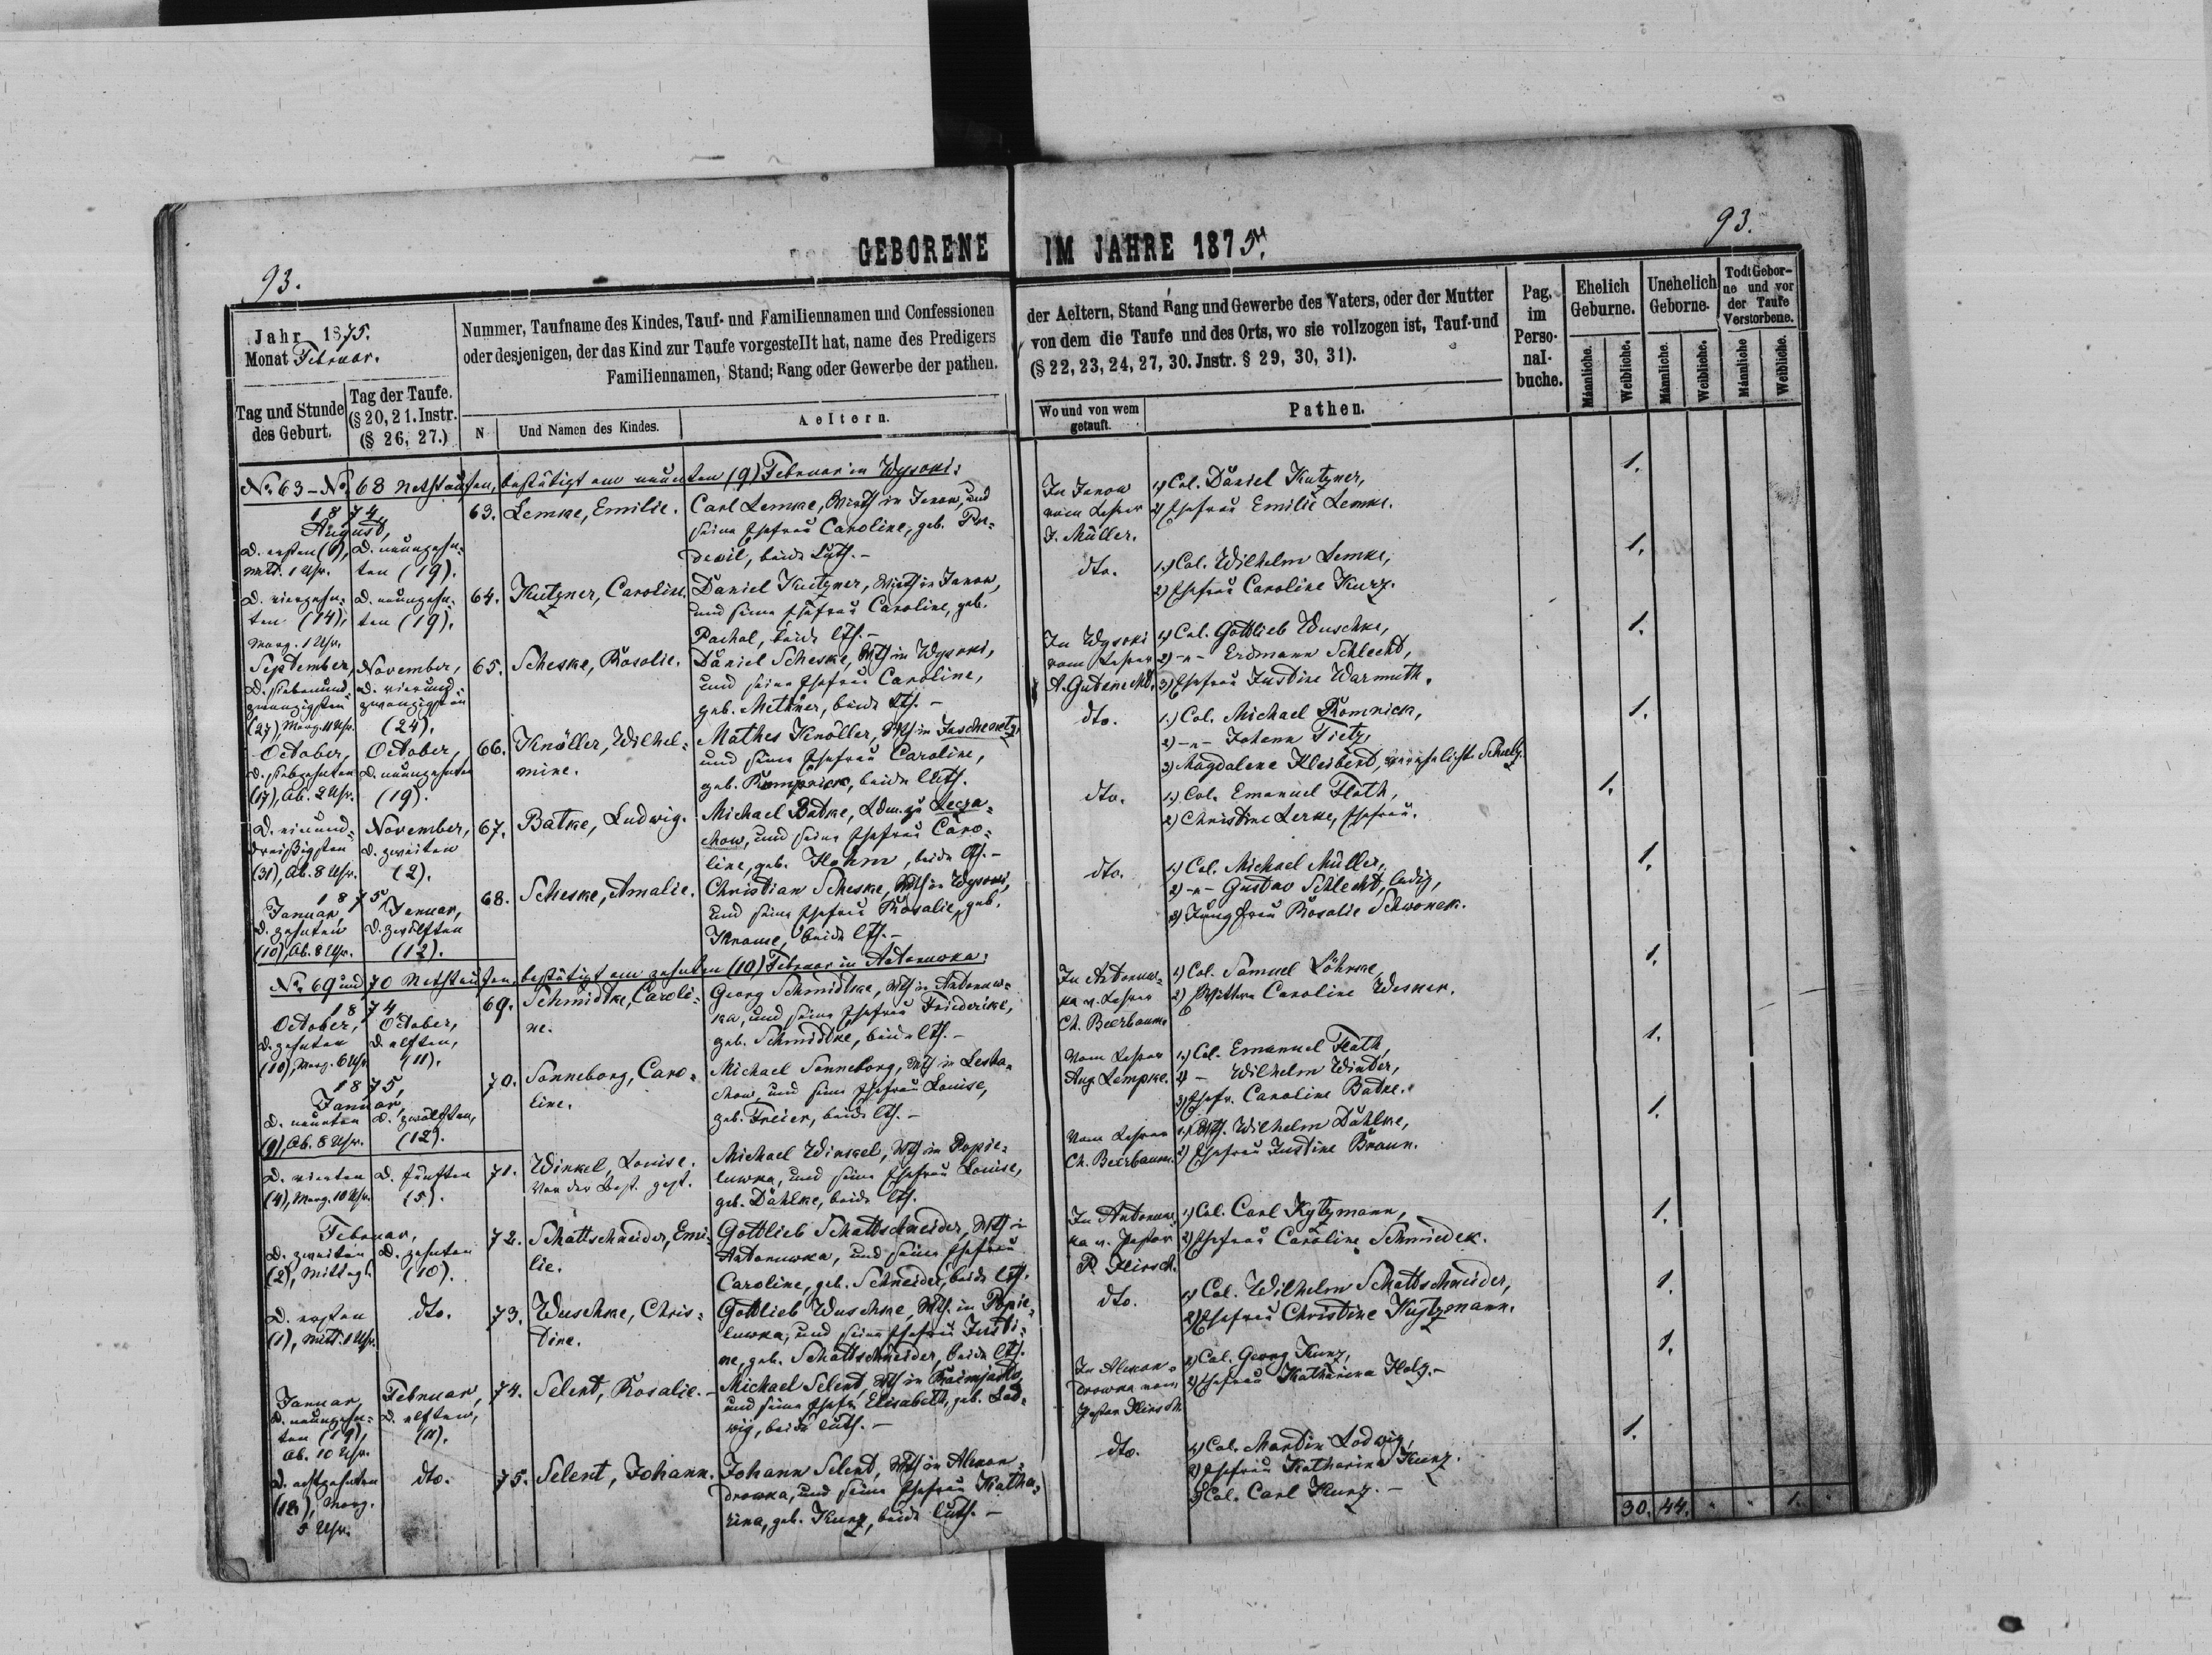 93.
93.
GEBORENE IM JAHRE 1875.
Jahr 1875.
Monat Februar.
Tag und Stunde des Geburt.
Tag der Taufe. (§ 20, 21. Instr. (§ 26, 27.)
Nummer, Taufname des Kindes, Tauf- und Familiennamen und Confessionen
oder desjenigen, der das Kind zur Taufe vorgestellt hat, name des Predigers
Familiennamen, Stand; Rang oder Gewerbe der pathen.
N
Und Namen des Kindes.
Aeltern.
der Aeltern, Stand Rang und Gewerbe des Vaters, oder der Mutter
von dem die Taufe und des Orts, wo sie vollzogen ist, Tauf-und
(§ 22, 23, 24, 27, 30. Jnstr. § 29, 30, 31).
Wo und von wem getauft.
Pathen.
Pag. im Perso-nal-buche.
Ehelich Geburne.
Unehelich Geborne.
Todt Gebor-ne und vor der Taufe Verstorbene.
Männliche. Weibliche. Männliche. Weibliche. Männliche Weibliche.
No. 63 - No. 68 Nothtaufen, bestätigt am neunten (9) Februar in Wysoki:
1874,
August,
D. ersten (1),
mitt. 1 Uhr.
D. neunzehn-
ten (19).
63.
Lemke, Emilie.
Carl Lemke, Wirth in Janow, und
seine Ehefrau Caroline, geb.
beide luth. -
In Janow
vom Lehrer
J. Müller.
1) Col. Daniel Kutzner,
2) Ehefrau Emilie Lemke.
1.
D. vierzehn-
ten (14),
Morg. 1 Uhr.
D. neunzehn-
ten (19).
64.
Kutzner, Caroline.
Daniel Kutzner, Wirth in Janow,
und seine Ehefrau Caroline, geb.
Pachal, beide lth. -
dto.
1.) Col. Wilhelm Lemke,
2) Ehefrau Caroline Kurz.
1.
September,
D. siebenund-
zwanzigsten
(27), Morg. 11 Uhr.
November,
D. vierund-
zwanzigsten
(24).
65.
Scheske, Rosalie.
Daniel Scheske, Wth in Wysoki,
und seine Ehefrau Caroline,
geb. Methner, beide lth. -
In Wysoki
vom Lehrer
A. Gutknecht.
1) Col. Gottlieb Wuschke,
2) -"- Erdmann Schlecht,
3) Ehefrau Justine Warmuth.
1.
October,
D. siebzehnten
(17), Ab. 2 Uhr.
October,
D. neunzehnten
(19).
66.
Knöller, Wilhel-
mine.
Mathes Knöller, Wth in
und seine Ehefrau Caroline,
geb. Romnick, beide luth.
dto.
1.) Col. Michael Romnick,
2) -"- Johann Tietz,
3) Magdalena Kleibert, verehelichte Schulz.
1.
D. einund-
dreißigsten
(31), Ab. 8 Uhr.
November,
D. zweiten
(2).
67.
Batke, Ludwig.
Michael Batke, Ldm. zu Lecza-
chow, und seine Ehefrau Caro-
line, geb. Hohm, beide lth. -
dto.
1.) Col. Emanuel Flath,
2) Christine Lerke, Ehefrau.
1.
1875,
Januar,
D. zehnten
(10), Ab. 8 Uhr.
Januar,
D. zwölften
(12).
68.
Scheske, Amalie.
Christian Scheske, Wth in Wysoki,
und seine Ehefrau Rosalie, geb.
Krause, beide lth. -
dto.
1.) Col. Michael Müller,
2) -"- Gustav Schlecht, ledig,
3) Jungfrau Rosalie Schwonek.
1.
No. 69 und 70 Nothtaufen, bestätigt am zehnten (10) Februar in Antonuwka:
1874,
October,
D. zehnten
(10), Morg. 6 Uhr
October,
D. elften,
(11).
69.
Schmidtke, Caroli-
ne.
Georg Schmidtke, Wth in Antonuw-
ka, und seine Ehefrau Friederike,
geb. Schmidtke, beide lth. -
In Antonuw-
ka v. Lehrer
Ch. Beerbaum
1) Col. Samuel Löhrke,
2) Wittwe Caroline Wesner.
1.
1875,
Januar,
D. neunten
(9), Ab. 8 Uhr.
D. zwölften,
(12).
70.
Sonneborg, Caro-
line.
Michael Sonneborg, Wth in Lesta-
chow, und seine Ehefrau Louise,
geb. Freier, beide lth. -
Vom Lehrer
Aug. Lempke.
1.) Col. Emanuel Flath,
2) - Wilhelm Winter,
3) Ehefr. Caroline Batke.
1.
D. vierten
(4), Morg. 10 Uhr.
D. fünften
(5).
71.
Winkel, Louise.
Vor der Best. gest.
Michael Winkel, Wth in Popie-
luwka, und seine Ehefrau Louise,
geb. Dählke, beide lth.
Vom Lehrer
Ch. Beerbaum.
1.) Wth. Wilhelm Dählke,
2) Ehefrau Justine Braun.
1.
Februar,
D. zweiten
(2), Mittags.
D. zehnten
(10).
72.
Schattschneider, Emi-
lie.
Gottlieb Schattschneider, Wth in
Antonuwka, und seine Ehefrau
Caroline, geb. Schneider, beide lth.
In Antonuw-
ka v. Pastor
P. Hirsch.
1) Col. Carl Kytzmann,
2) Ehefrau Caroline Schmiedek.
1.
D. ersten
(1), Mitt. 1 Uhr.
dto.
73.
Wuschke, Chris-
tine.
Gottlieb Wuschke, Wth. in Popie-
luwka, und seine Ehefrau Justi-
ne, geb. Schattschneider, beide lth.
dto.
1) Col. Wilhelm Schattschneider,
2) Ehefrau Christine Kytzmann.
1.
Januar,
D. neunzehn-
ten (19),
Ab. 10 Uhr.
Februar,
D. elften,
(11).
74.
Selent, Rosalie. -
Michael Selent, Wth in
und seine Ehefr. Elisabeth, geb. Lod-
wig, beide luth. -
In Alexan-
drowka vom
Pastor Hirsch.
1) Col. Georg Kunz,
2) Ehefrau Katharina Holz. -
1.
D. achtzehnten
(18), Morg.
5 Uhr.
dto.
75.
Selent, Johann.
Johann Selent, Wth in Alexan-
drowka, und seine Ehefrau Katha-
rina, geb. Kunz, beide luth. -
dto.
1) Col. Martin Lodwig,
2) Ehefrau Katharina Kunz.
3) Col. Carl Kunz. -
1.
30. 44. " " 1. "